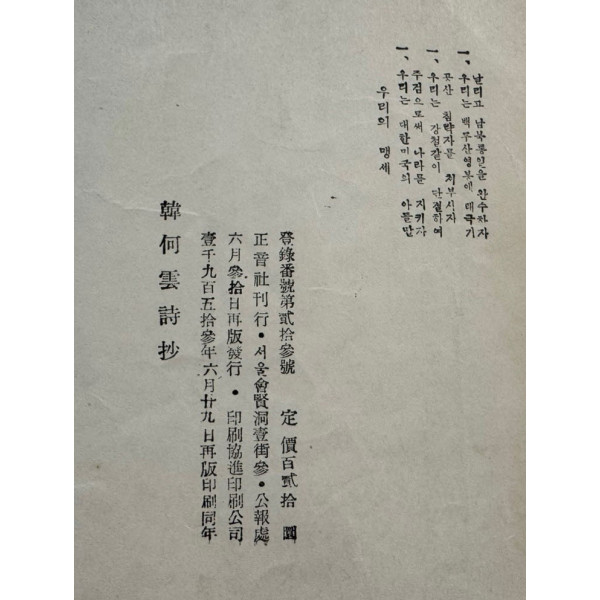 우리의 맹세
一、우리는 대한민국의 아들딸
주검으로써 나라를 지키자
一、우리는 강철같이 단결하여
공산 침략자를 처부시자
一、우리는 백두산영봉에 태극기
날리고 남북통일을 완수하자
韓何雲詩抄
壹千九百五拾參年六月廿九日再版印刷同年
六月參拾日再版發行・印刷協進印刷公司
正音社刊行・서울會賢洞壹街參・公報處
登錄番號第貳拾參號 定價百貳拾圜